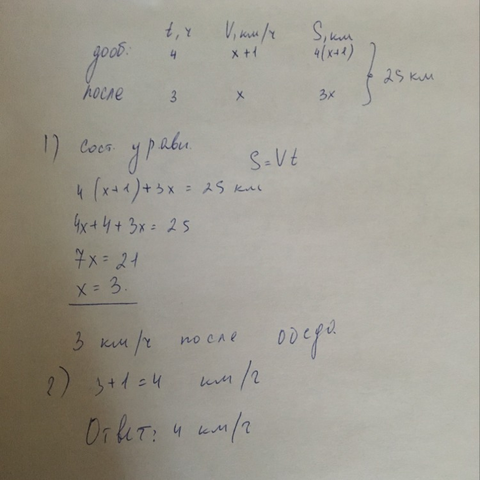 t, ч V, км/ч S, км
до об: 4 x+1 4(x+1)
25 км
после 3 x 3x
1) сост. уравн.
S=Vt
4(x+1)+3x = 25 км
4x+4+3x = 25
7x = 21
x = 3.
3 км/ч после обеда.
2) 3+1=4 км/ч
Ответ: 4 км/ч